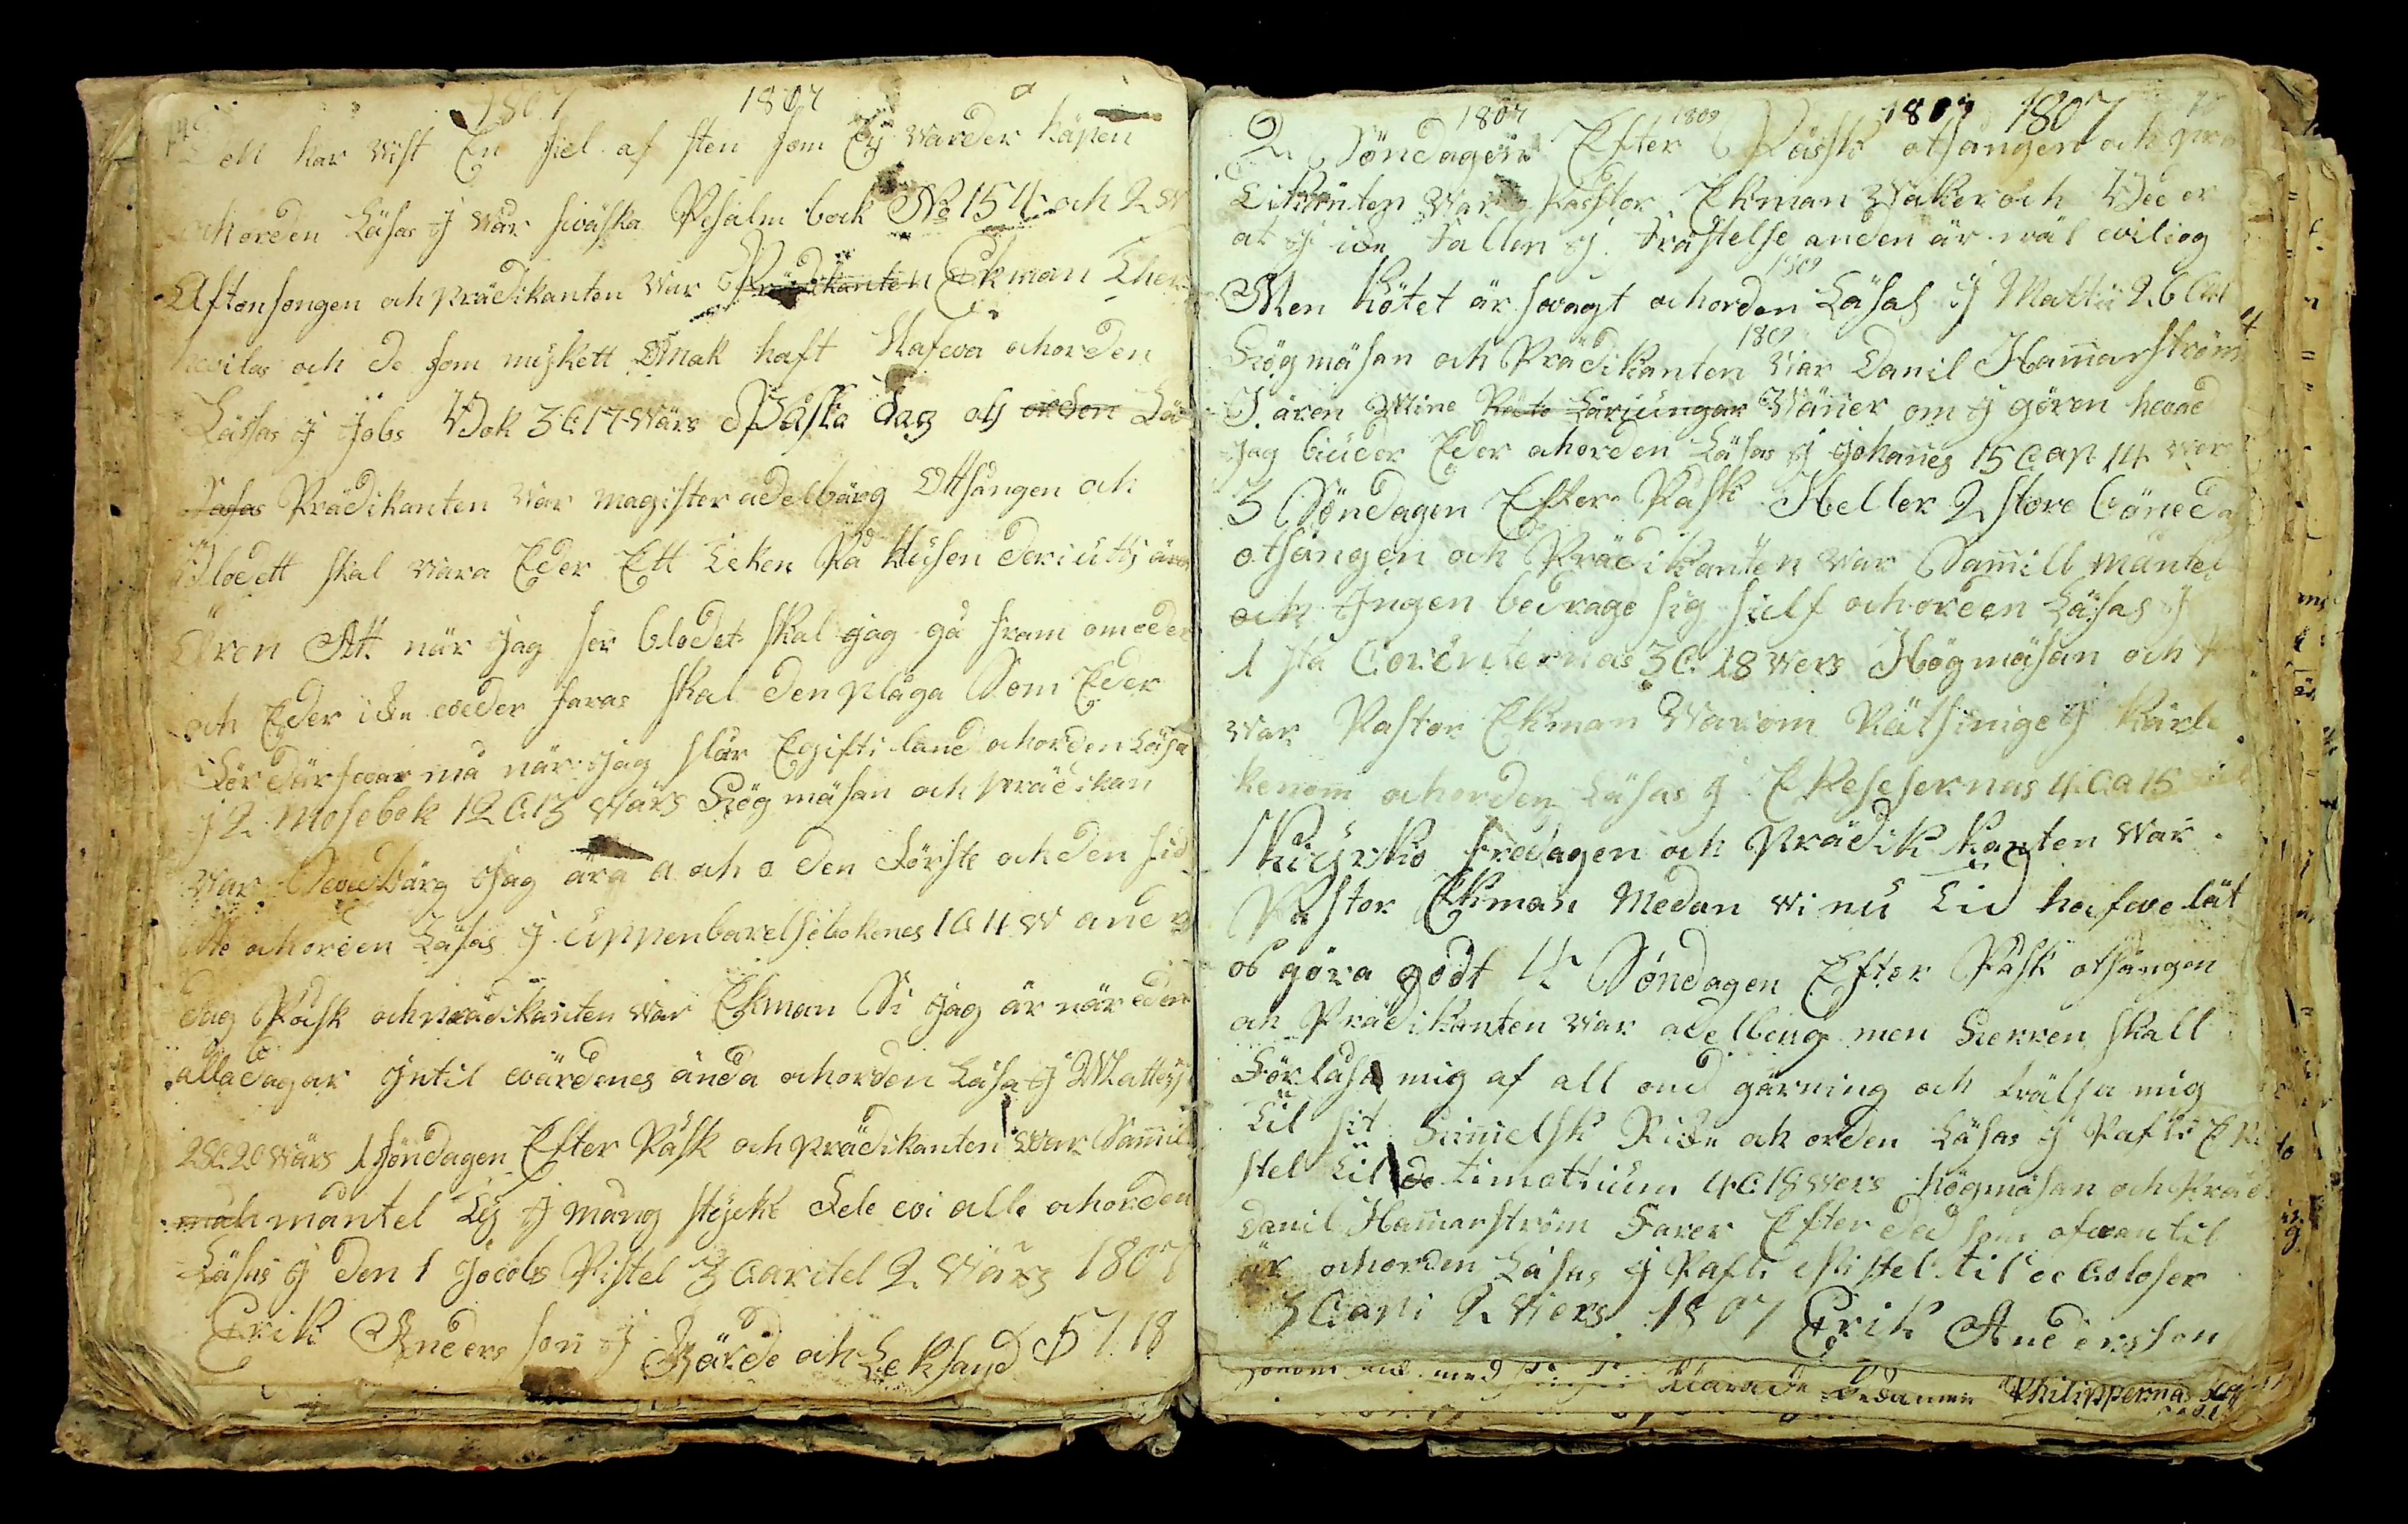 1807 1807
Den har vist En siel af sten som Ey varder häpen
ochorden Läsas J vår sväska Psalm bok No 154 och 2 v
Aftonsongen och prädikanten var Prädikanten Ekman Ther
hvilas och de som myskett Omak haft Hafva ochorden
Läsas J Jobs Bok 3 C 17 värs Påska dag oty orden Läs
Säsas Prädikanten var magister adelbärg Ottsången och
Blodett skal vara Eder Ett Teken På Husen deriutij ären
Ären Att när Jag ser blodet skal jag gå fram om eder
och Eder icke veder faras skal den plåga Som Eder
förderfvar må när Jag slår Egipti land ochorden Läsa
J 2 Mosebok 12 C 13 värs Högmäsan och prädikan
var Svedbärg Jag ära a och o den Förste och den sid
ste ochorden Läsas J uppenbarelsebokenes 1 C 11 v and
dag Påsk ochprädikanten var Ekman Si Jag är när eder
alladagar Jntil värdenes ända ochorden Läsa J Matteij
28 C 20 värs 1 söndagen Efter Påsk och prädikanten var Samuel
mah mantel Ty J mång stycke Fele vi alle ochorden
Läsas J den 1 Jacobs Pistel 3 Caritel 2 Värs 1807
Erik Anders son J Gärde och Leksand 5 7 18
1807 1809 1807 1807
2 Söndagen Efter Påssk otsangen och pre
Dikanten var Pastor Ekman Waker och Bee er
at J icke fallen J. frästelse anden är wäl viliog
1809
Men Kötet är svagt ochorden Läsas J Mattii 26 C 41
1809
Högmäsan och Prädikanten var Danil Hamarström
J ären Mine Rate Lärjungar Wäner om J gören hvad
Jag biuder Eder ochorden Läsas J Johanes 15 Cap. 14 vers
3 Söndagen Efter Påsk Heller 2 store böneda
otsången och Prädikanten var Samill mantel
och Jngen bedrage sig sielf ochorden Läsas J
1 sta Corinternas 3 C. 18 vers Högmäsan och
var Pastor Ekman Warom Rätsinige J Kärle
kenom ochorden Läsas J Efesesernas 4 Ca 15
Kiyrkio fredagen och Prädik Kanten var
Pastor Ekman Medan vi nu Tid hafve låt
os göra godt 4 Söndagen Efter Påsk otsången
och Prädikanten var adelberg men Herren skall
Förlåsa mig af all ond gärning och frälsa mig
Til sit Himelsk Ricke och orden Läsas J Pafli Epi
stel til do timotium 4 C 18 vers högmäsan och Präd
Danil Hamarström Farer Efter ded som ofvan til
är ochorden Läsas J Pafli epistel til de Coloser
3 Capi 2 vers 1807 Erik Andersson
Philippernas